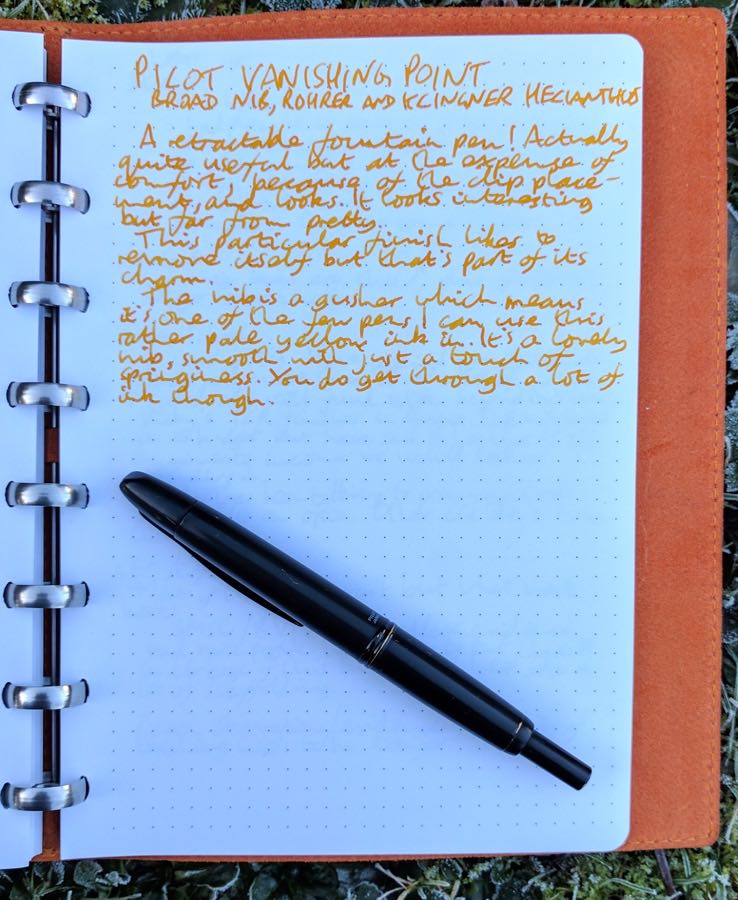 PILOT VANISHING POINT
BROAD NIB, ROHRER AND KLINGNER HELIANTHUS
A retractable fountain pen! Actually
quite useful but at the expense of
comfort, because of the clip place-
ment, and looks. It looks interesting
but far from pretty.
This particular finish likes to
remove itself but that's part of its
charm.
The nib is a gusher which means
it's one of the few pens I can use this
rather pale yellow ink in. It's a lovely
nib, smooth with just a touch of
springiness. You do get through a lot of
ink though.